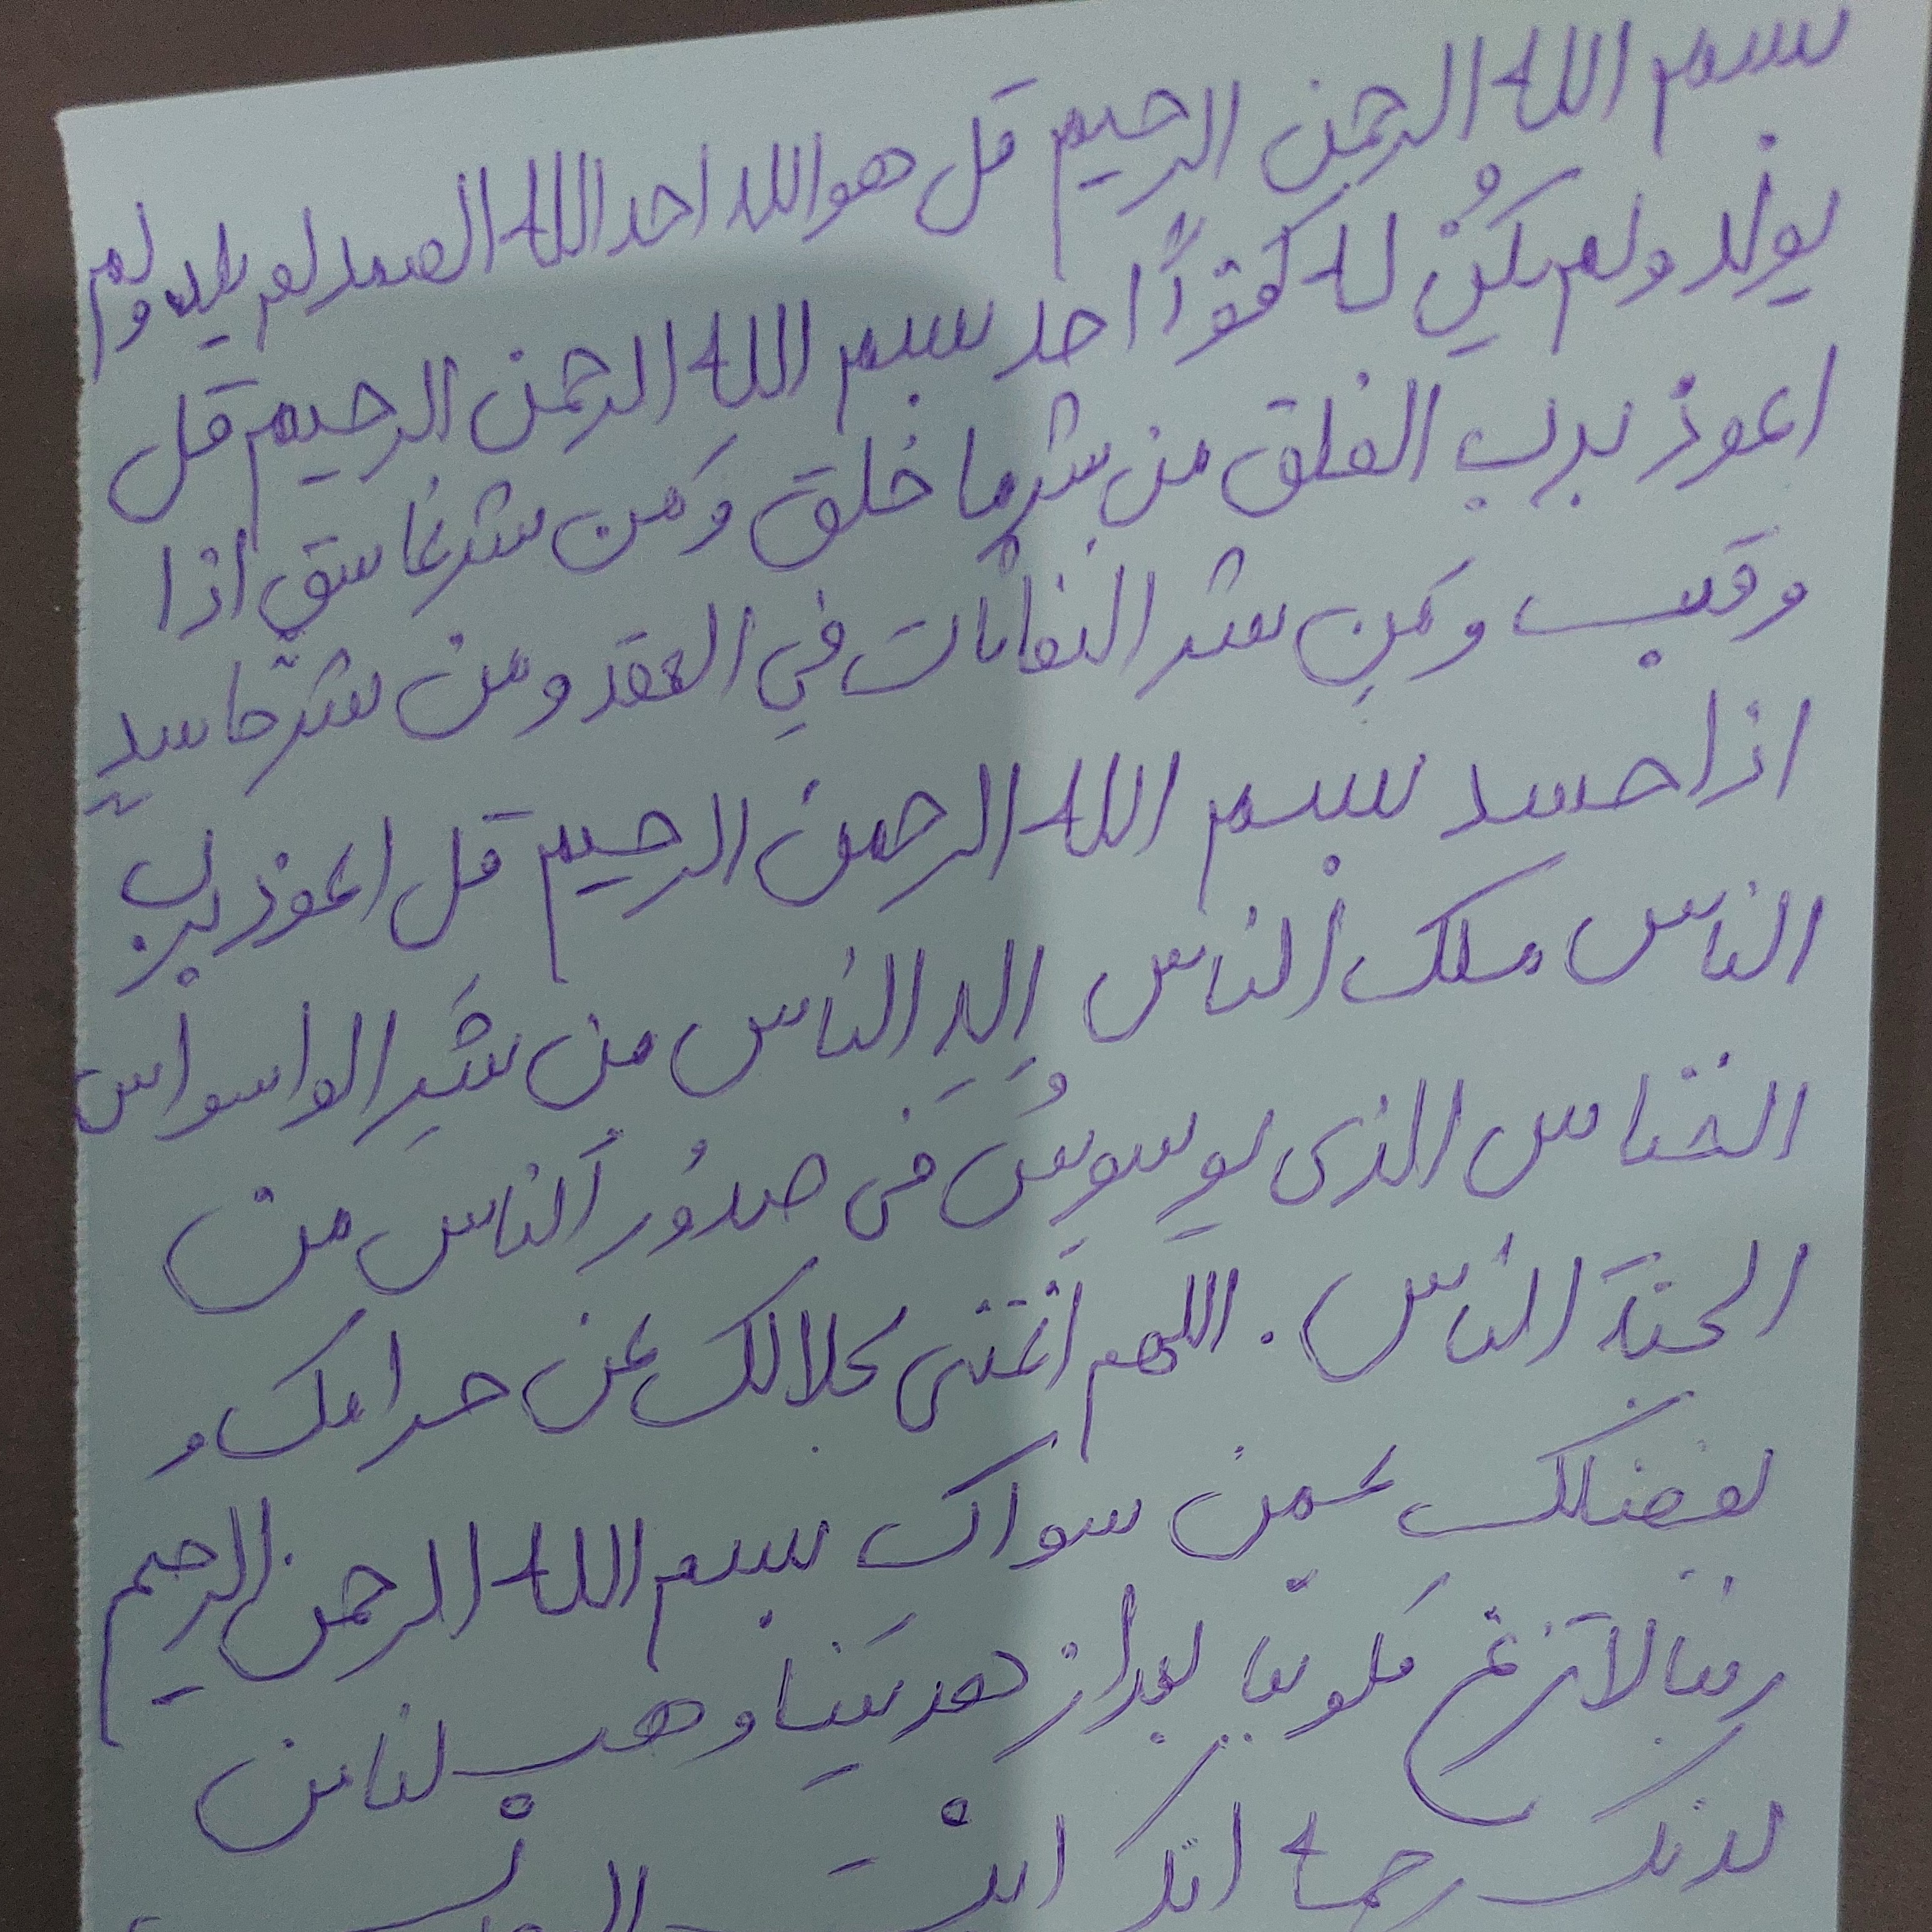 بسم الله الرحمن الرحيم قل هو الله احد الله الصمد لم يلد ولم
يولد ولم يكُنِ له كفوًا احد بسم الله الرحمن الرحيم قل
اعوذ برب الفلق من شر ما خلق وَمن شر غاسق اذا
وقب وَمِن شر النفاثات في العقد ومن شر حاسدٍ
اذا حسد بسم الله الرحمن الرحيم قل اعوذ برب
الناس ملك الناس اِلهِ الناس من شَرِ الواسواس
الخناس الذى يوسوِسُ فى صدُور الناس من
الجنة الناس . اللهم اغننى بحلالك عن حرامك و
بفضلك عمن سواك بسم الله الرحمن الرحيم
ربنا لا تزغ قلوبنا بعد از هديتنا وهب لنا من
لدنك رحمة انك انت